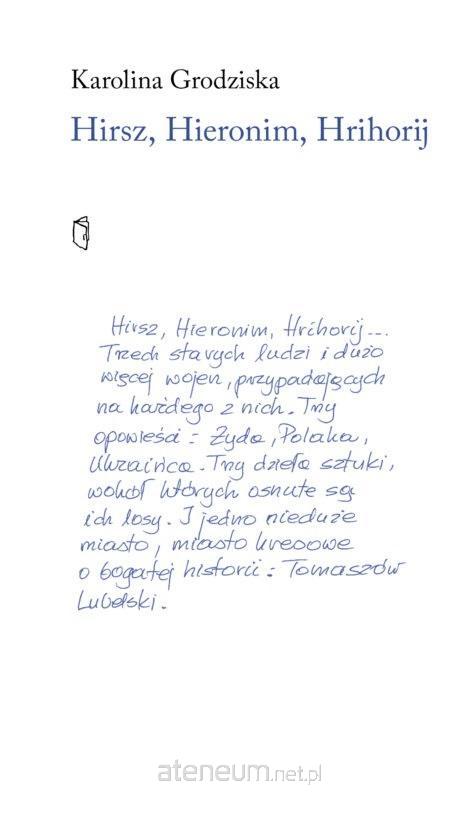 Karolina Grodziska
Hirsz, Hieronim, Hrihorij
Hirsz, Hieronim, Hrihorij...
Trzech starych ludzi i dużo
więcej wojen, przypadających
na każdego z nich. Trzy
opowieści : Żyda, Polaka,
Ukraińca. Trzy dzieła sztuki,
wokół których osnute są
ich losy. I jedno nieduże
miasto, miasto kresowe
o bogatej historii : Tomaszów
Lubelski.
ateneum.net.pl